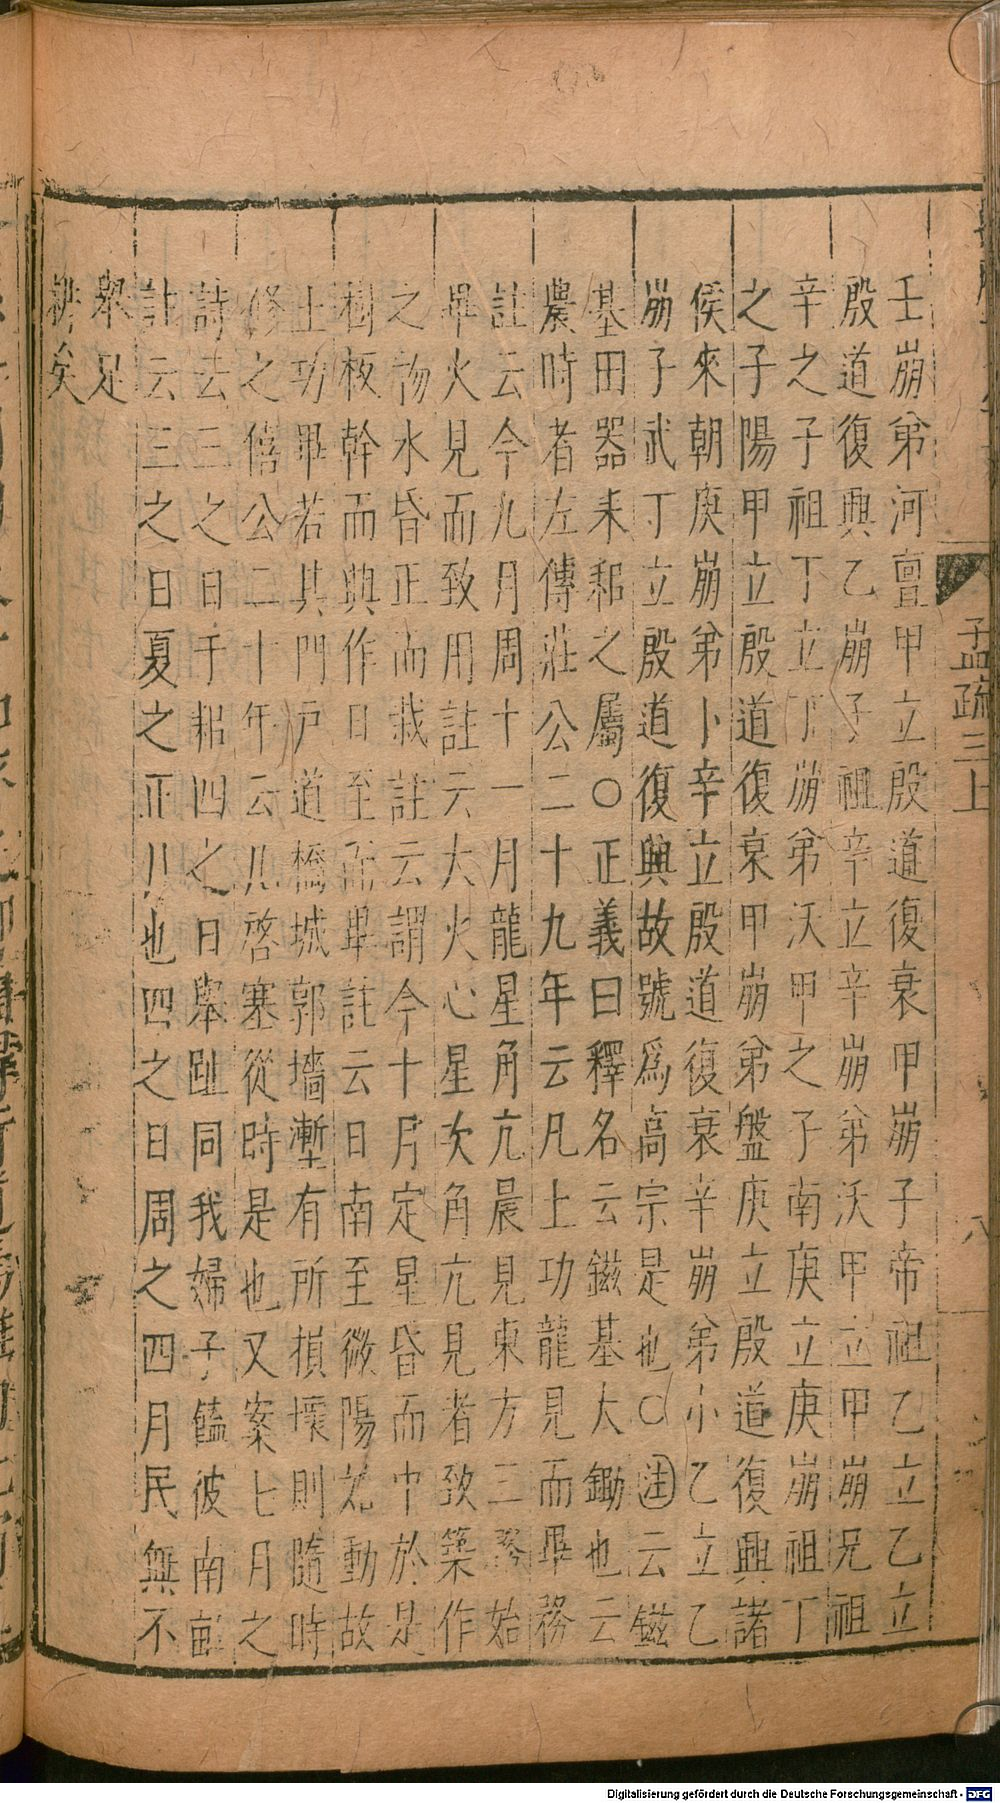 壬崩弟河亶甲立殷道復衰甲崩子帝祖乙立乙立
殷道復興乙崩子祖辛立辛崩弟沃甲立甲崩兄祖
辛之子祖丁立丁崩弟沃甲之子南庚立庚崩祖丁
之子陽甲立殷道復衰甲崩弟盤庚立殷道復興諸
侯來朝庚崩弟小辛立殷道復衰辛崩弟小乙立乙
崩子武丁立殷道復興故號爲高宗是也○注云鎡
基田器耒耜之屬○正義曰釋名云鎡基大鋤也云
農時者左傳莊公二十九年云凡土功龍見而畢務
註云今九月周十一月龍星角亢晨見東方三務始
畢火見而致用註云大火心星次角亢見者致築作
之物水昏正而栽註云謂今十月定星昏而中於是
樹板幹而興作日至而畢註云日南至微陽始動故
土功畢若其門戶道橋城郭墻塹有所損壞則隨時
修之僖公二十年云凡啓塞從時是也又案七月之
詩云三之日于耜四之日舉趾同我婦子饁彼南畝
註云三之日夏之正月也四之日周之四月民無不
舉足
耕矣
孟疏三上
八
Digitalisierung gefördert durch die Deutsche Forschungsgemeinschaft - DFG